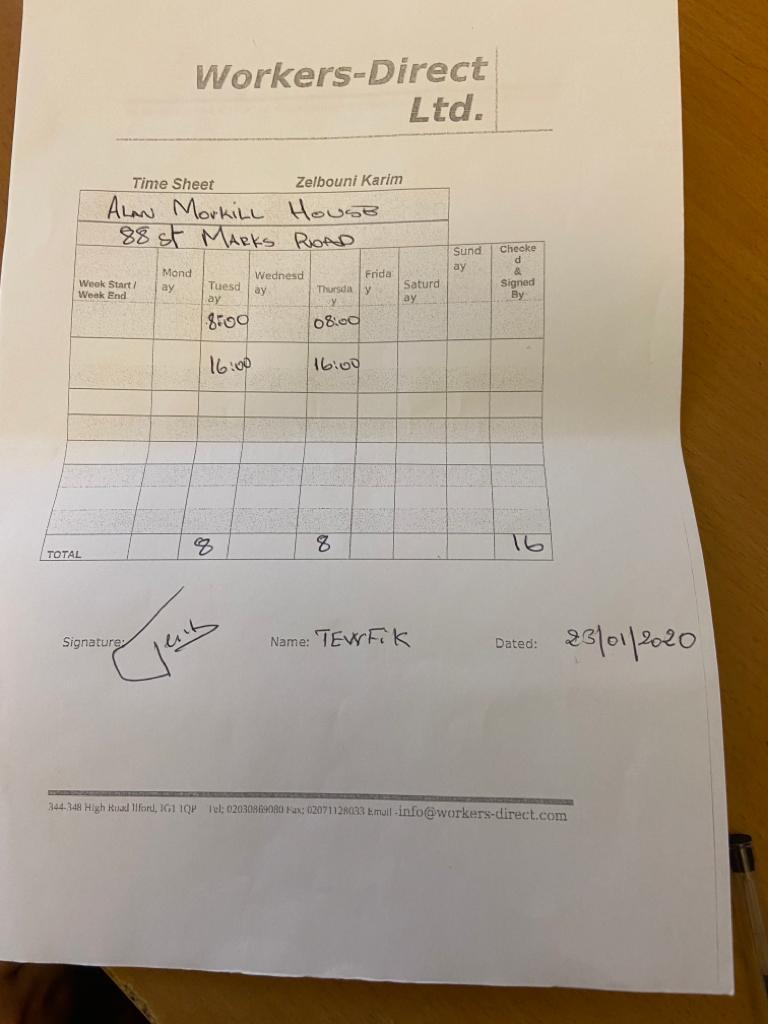 Workers-Direct
Ltd.
Time Sheet Zelbouni Karim
ALAN MORKILL HOUSE
88 St MARKS ROAD
Week Start / Week End Mond ay Tuesd ay Wednesd ay Thursda y Frida y Saturd ay Sund ay Checke d & Signed By
8:00 08:00
16:00 16:00
TOTAL 8 8 16
Signature: Name: TEWFiK Dated: 23/01/2020
344-348 High Road Ilford, IG1 1QP Tel; 02030869080 Fax; 02071128033 Email -info@workers-direct.com